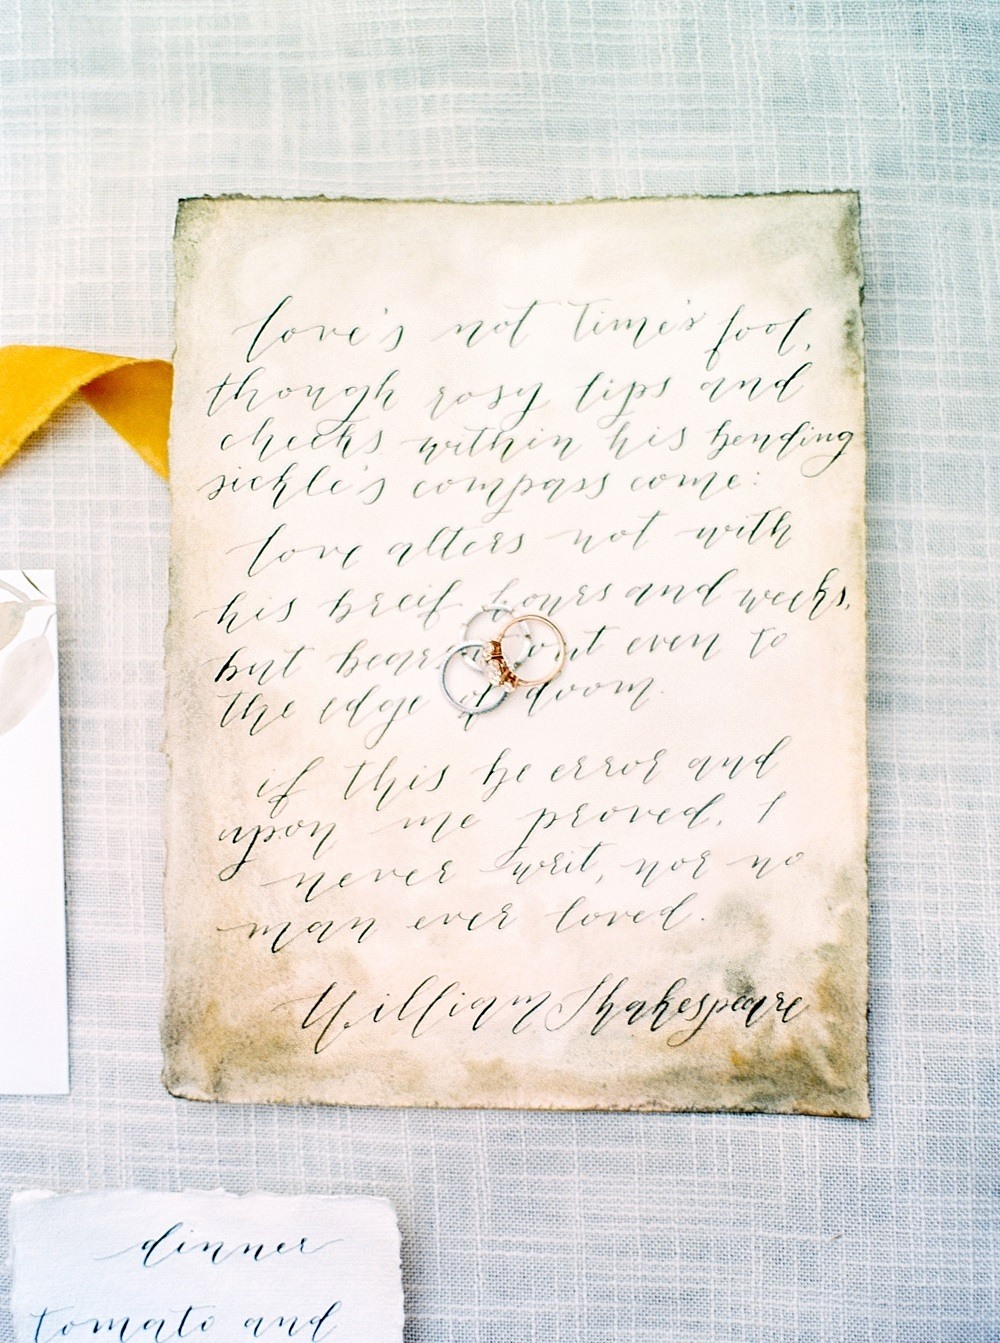 love's not time's fool,
though rosy lips and
cheeks within his bending
sickle's compass come:
love alters not with
his breif hours and weeks,
but bears out even to
the edge of doom.
if this be error and
upon me proved, I
never writ, nor no
man ever loved.
William Shakespeare
dinner
tomato and